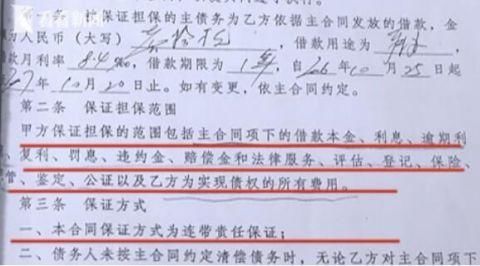 看看新闻
条 被保证担保的主债务为乙方依据主合同发放的借款，金
为人民币（大写） ，借款用途为 ，借
款月利率 8.4 ‰，借款期限为 1年，自 06 年 10 月 25 日起
07 年 10 月 20 日止。如有变更，依主合同约定。
第二条 保证担保范围
甲方保证担保的范围包括主合同项下的借款本金、利息、逾期利
、复利、罚息、违约金、赔偿金和法律服务、评估、登记、保险、
管、鉴定、公证以及乙方为实现债权的所有费用。
第三条 保证方式
一、本合同保证方式为连带责任保证；
二、债务人未按主合同约定清偿债务时，无论乙方对主合同项下